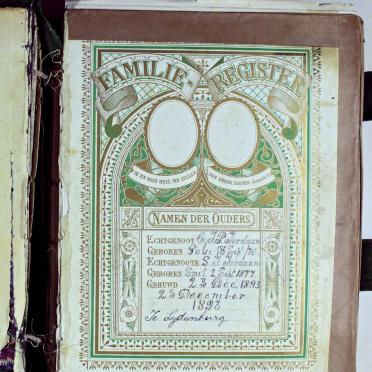 FAMILIE-REGISTER
IK EN MIJN HUIS, WIJ ZULLEN DEN HEERE DIENEN.
NAMEN DER OUDERS
ECHTGENOOT C. J. P. Jordaan
GEBOREN 18 Feb
ECHTGENOOTE S. J. Jordaan
GEBOREN 2 Sept 1877
GEHUWD 23 Dec 1893
23 December
1893
Te Lydenburg.